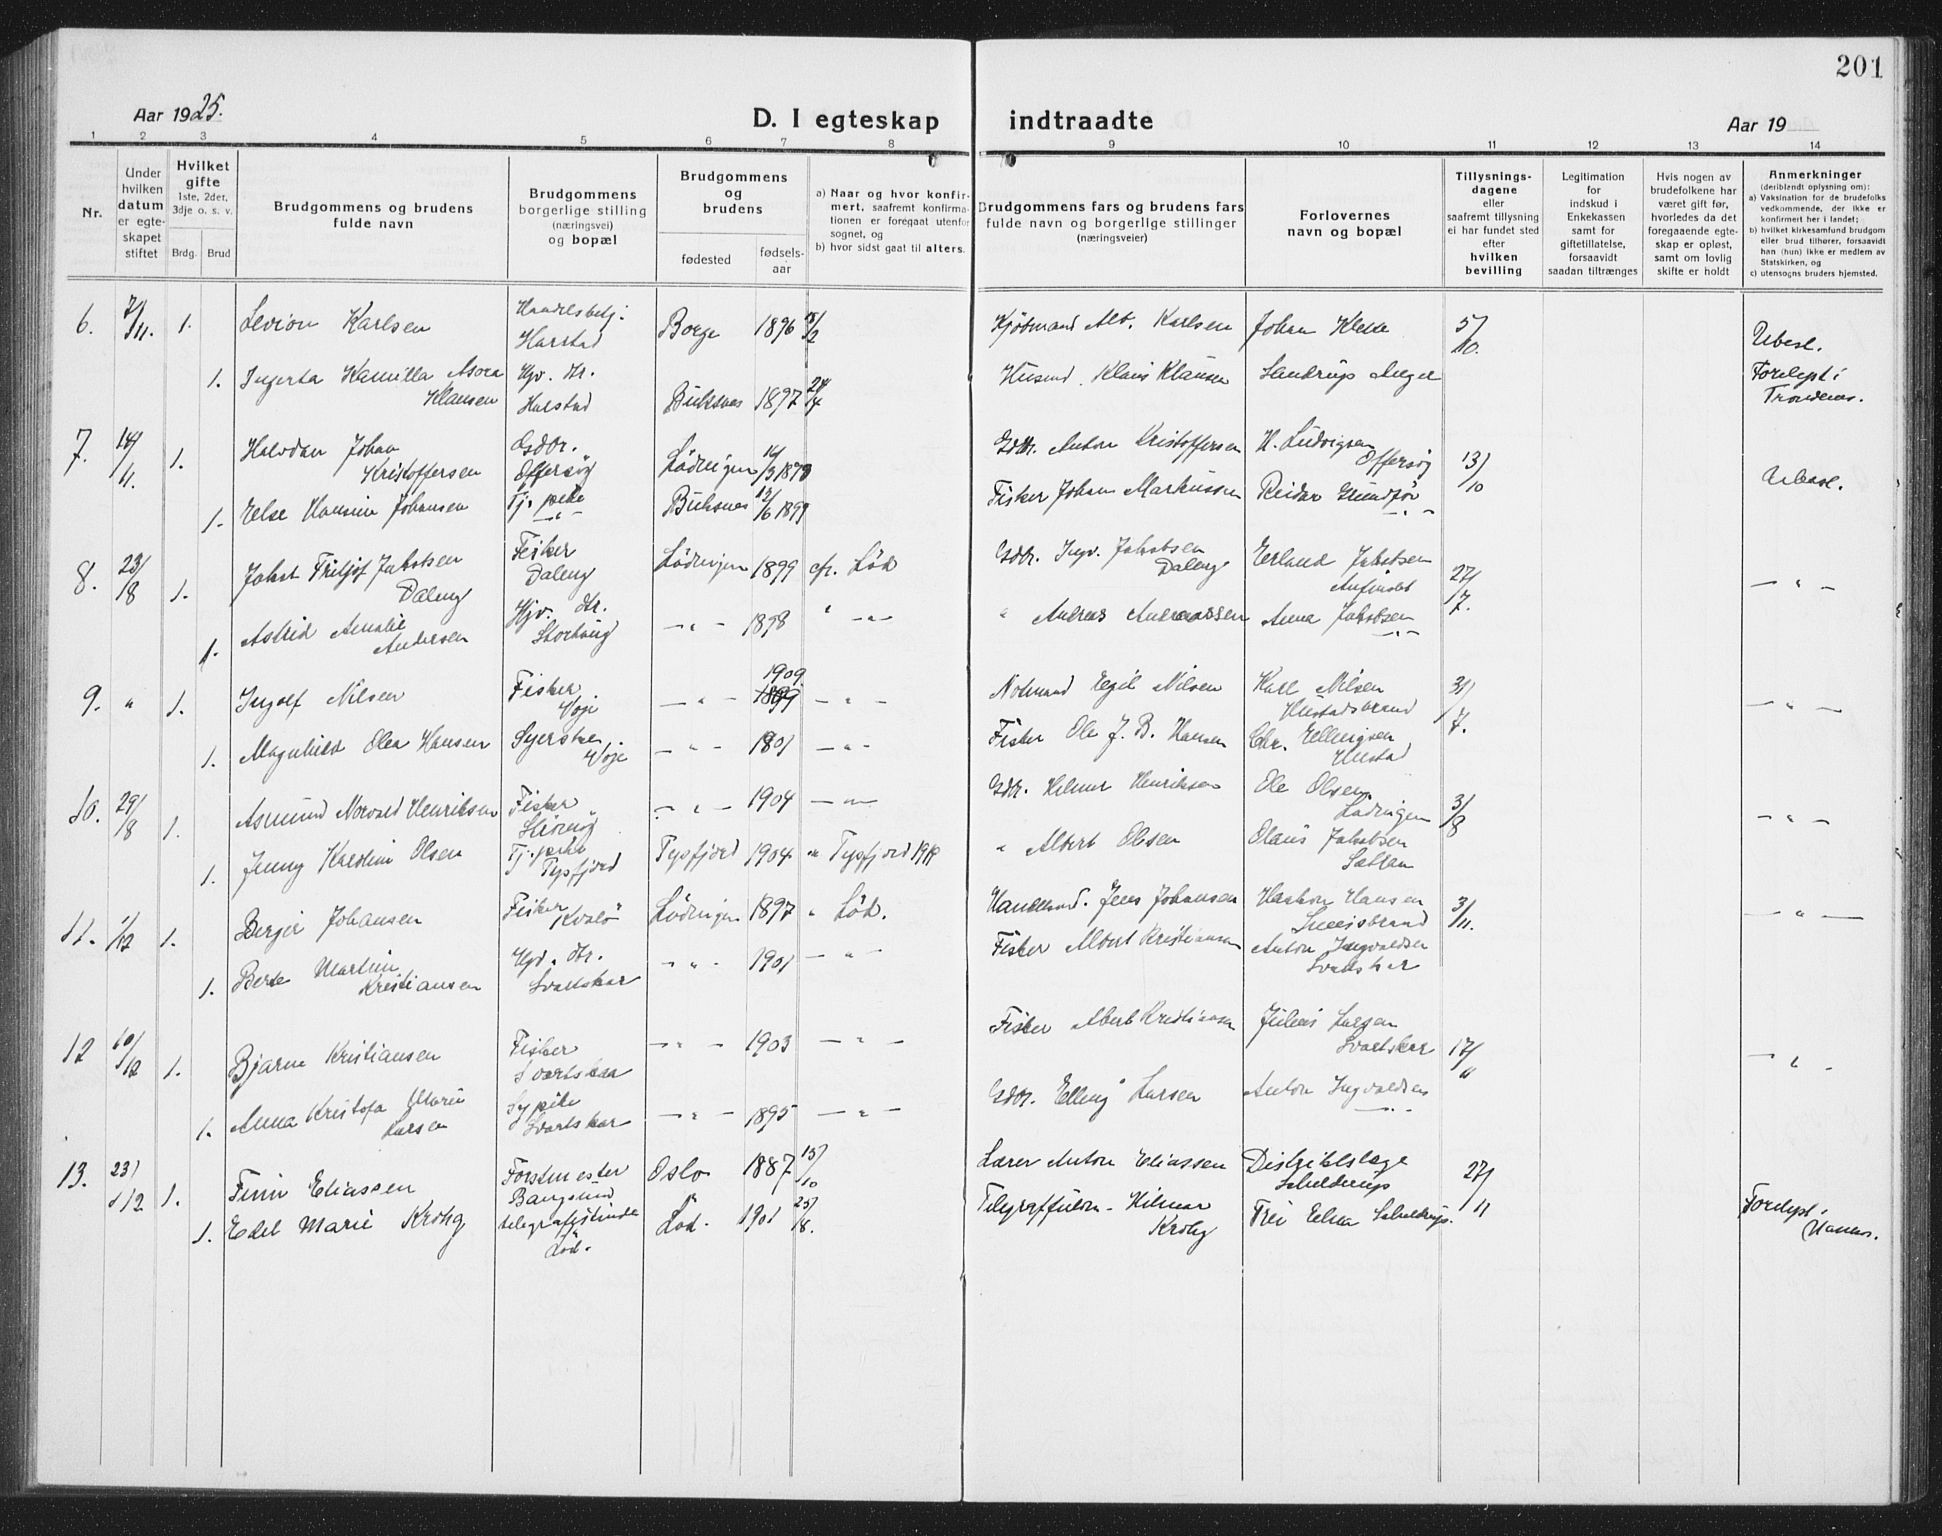 201
Aar 1925.
D. I egteskap indtraadte
Aar 19
1 2 3 4 5 6 7 8 9 10 11 12 13 14
Nr.
Under hvilken datum er egteskapet stiftet
Hvilket gifte
1ste, 2det, 3dje o. s. v.
Brdg. Brud
Brudgommens og brudens fulde navn
Brudgommens borgerlige stilling (næringsvei) og bopæl
Brudgommens og brudens
fødested
fødselsaar
a) Naar og hvor konfirmert, saafremt konfirmationen er foregaat utenfor sognet, og
b) hvor sidst gaat til alters.
Brudgommens fars og brudens fars fulde navn og borgerlige stillinger (næringsveier)
Forlovernes navn og bopæl
Tillysningsdagene eller saafremt tillysning ei har fundet sted efter hvilken bevilling
Legitimation for indskud i Enkekassen samt for giftetillatelse, forsaavidt saadan tiltrænges
Hvis nogen av brudefolkene har været gift før, hvorledes da det foregaaende egteskap er opløst, samt om lovlig skifte er holdt
Anmerkninger
(deriblandt oplysning om):
a) Vaksination for de brudefolks vedkommende, der ikke er konfirmert her i landet;
b) hvilket kirkesamfund brudgom eller brud tilhører, forsaavidt han (hun) ikke er medlem av Statskirken, og
c) utensogns bruders hjemsted.
6. 7/11. 1. Levion Karlsen Handelsbetj. Harstad Borge 1896 Kjøbmand Alb. Karlsen Johan Klette 5/10. Ubesl.
1. Ingerta Kamilla Asora Klausen Hgv. dtr. Harstad Buksnes 1897 24/4 Husmd. Klaus Klausen Forelyst i Trondenes.
7. 14/11. 1. Halvdan Johan Kristoffersen Gdbr. Offersøy Lødingen 14/3 1878 Gdbr. Anton Kristoffersen H. Ludvigsen Offersøy 13/10 Ubesl.
1. Else Hansine Johansen Tj. pike — " — Buksnes 12/6 1899 Fisker Johan Markussen Reidar Grundfør — " —
8. 23/8 1. Jakob Fritjof Jakobsen Daleng Fisker Daleng Lødingen 1899 cfr. Lød Gdbr. Ingv. Jakobsen Daleng Erland Jakobsen 27/7. — " —
1. Astrid Amalie Andersen Hgv. dtr. — " — 1898 " — " — " Andreas Andreassen Anna Jakobsen — " —
9. " 1. Ingolf Nilsen Fisker Voje — " — 1909 1899 — " — Notmand Egil Nilsen Karl Nilsen Hustadstrand 31/7. — " —
1. Magnhild Olea Hansen Syerske Voje — " — 1901 — " — Fisker Ole J. B. Hansen Chr. Ellingsen Hustad
10. 29/8 1. Asmund Norvald Henriksen Fisker — " — 1904 — " — Gdbr. Hilmar Henriksen Ole Olsen Lødingen 3/8 — " —
1. Jenny Karoline Olsen Tj. pike Tysfjord Tysfjord 1904 " Tysfjord 1919 " Albert Olsen Olaus Jakobsen
11. 1/12 1. Berger Johansen Fisker Kvalø Lødingen 1897 " Lød. Jens Johansen Haakon Hansen 3/11. — " —
1. Berte Martine Kristiansen Hgv. dtr. Svartskar — " — 1901 — " — Fisker Albert Kristiansen Anton Ingvaldsen Svartskar
12 10/12 1. Bjarne Kristiansen Fisker Svartskar — " — 1903 — " — Fisker Albert Kristiansen Julius Larsen Svartskar 17/11 — " —
1. Anna Kristofa Marie Larsen Sypike Svartskar — " — 1895 — " — Gdbr. Elling Larsen Anton Ingvaldsen — " —
13. 23/12 1. Finn Eliassen Forstmester Bangsund Oslo 1887 15/10 Lærer Anton Eliassen Distriktslæge Schelderup 27/11 Forelyst i
1. Edel Marie Krohg telegrafistinde Lød. Lød. 1901 25/8. Hilmar Krohg Elna Schelderup.